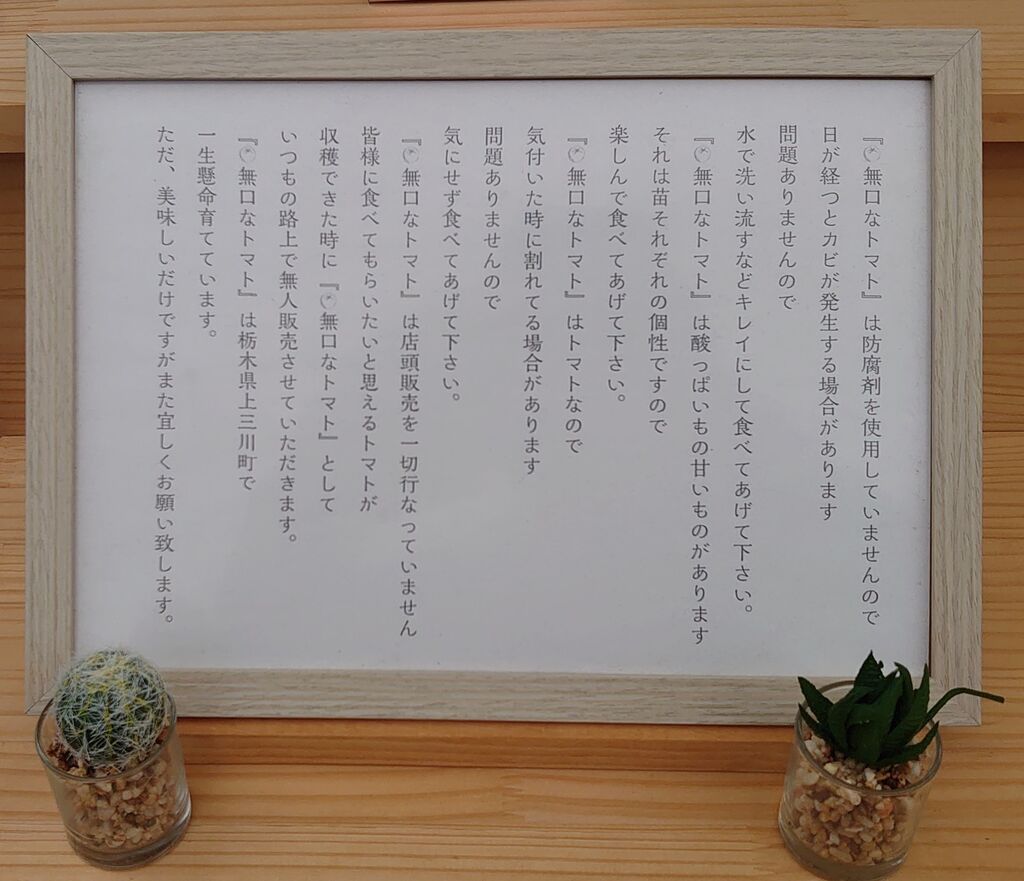 『無口なトマト』は防腐剤を使用していませんので
日が経つとカビが発生する場合があります
問題ありませんので
水で洗い流すなどキレイにして食べてあげて下さい。
『無口なトマト』は酸っぱいもの甘いものがあります
それは苗それぞれの個性ですので
楽しんで食べてあげて下さい。
『無口なトマト』はトマトなので
気付いた時に割れてる場合があります
問題ありませんので
気にせず食べてあげて下さい。
『無口なトマト』は店頭販売を一切行なっていません
皆様に食べてもらいたいと思えるトマトが
収穫できた時に『無口なトマト』として
いつもの路上で無人販売させていただきます。
『無口なトマト』は栃木県上三川町で
一生懸命育てています。
ただ、美味しいだけですがまた宜しくお願い致します。